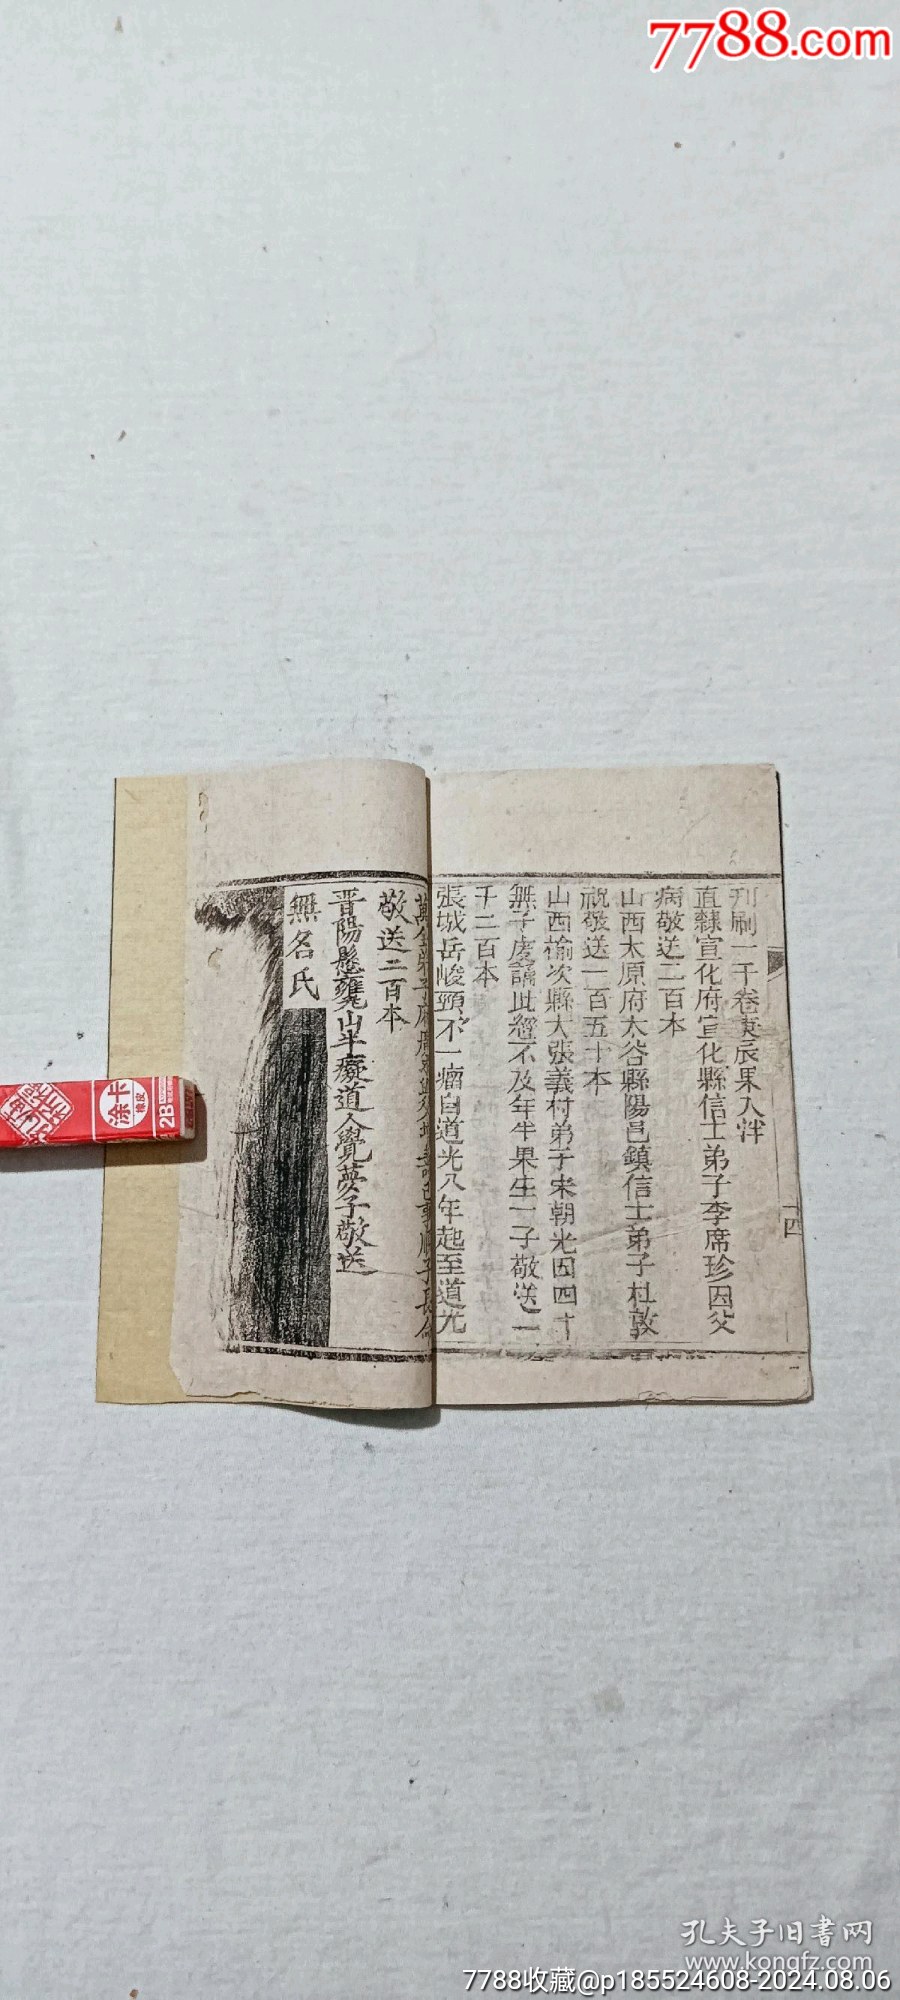 7788.com
刊刷一千卷庚辰果入泮
直隸宣化府宣化縣信士弟子李席珍因父
病敬送二百本
山西太原府太谷縣陽邑鎮信士弟子杜敦
祝敬送一百五十本
山西榆次縣大張義村弟子宋朝光因四十
無子虔誦此經不及年半果生一子敬送二
千二百本
張城岳峻頸不一瘤自道光八年起至道光
十四
敬送二百本
晋陽懸甕山半癡道人覺夢子敬送
無名氏
涂卡
橡皮
2B
孔夫子旧書网
www.kongfz.com
7788收藏@p185524608-2024.08.06